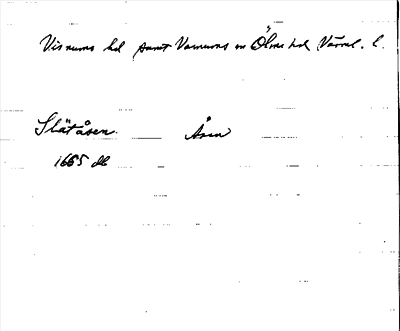 Visnums hd samt Varnums sn Ölme hd Värml. l.
Slätåsen Åsen
1665 db